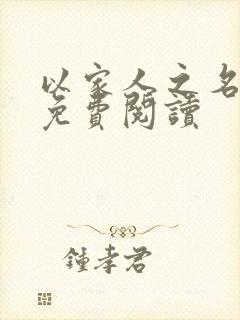 以家人之名
免費閱讀
鍾孝君